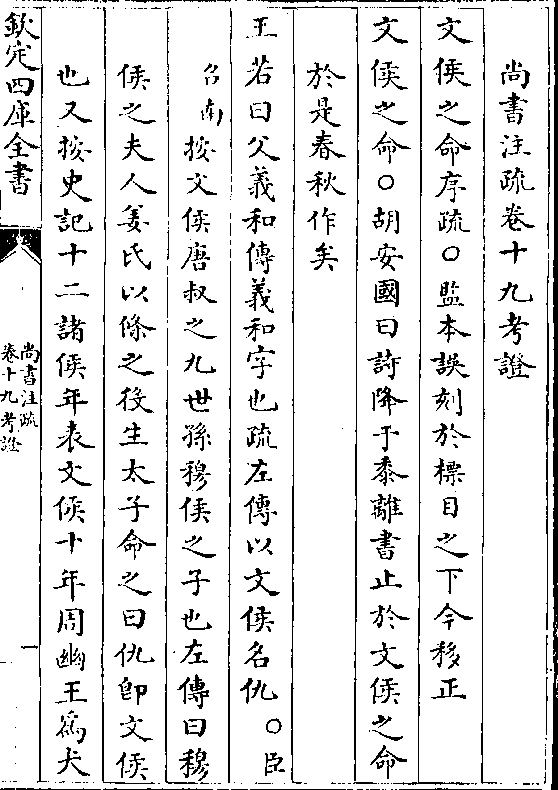 尚書注疏卷十九考證
文侯之命序疏○監本誤刻於標目之下今移正
文侯之命○胡安國曰詩降于黍離書止於文侯之命
於是春秋作矣
王若曰父義和傳義和字也疏左傳以文侯名仇○臣
召南按文侯唐叔之九世孫穆侯之子也左傳曰穆
侯之夫人姜氏以條之役生太子命之曰仇卽文侯
也又按史記十二諸侯年表文侯十年周幽王爲犬
欽定四庫全書
尚書注疏
卷十九考證
一